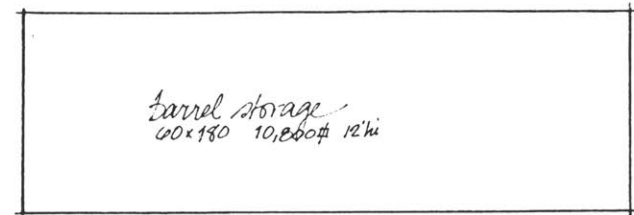 barrel storage
60x180 10,800⌗ 12'hi